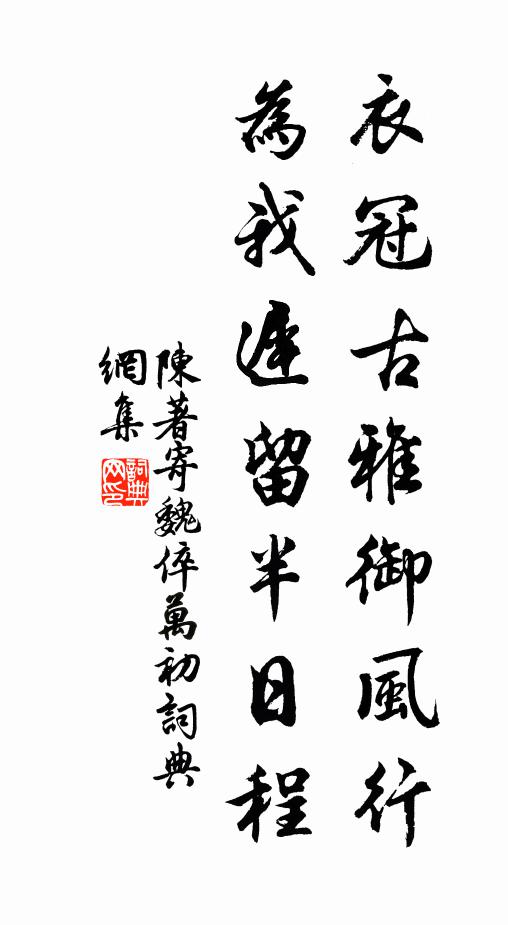 衣冠古雅御風行
為我遲留半日程
陳著寄魏倅萬初詞典
網集
詞典網印